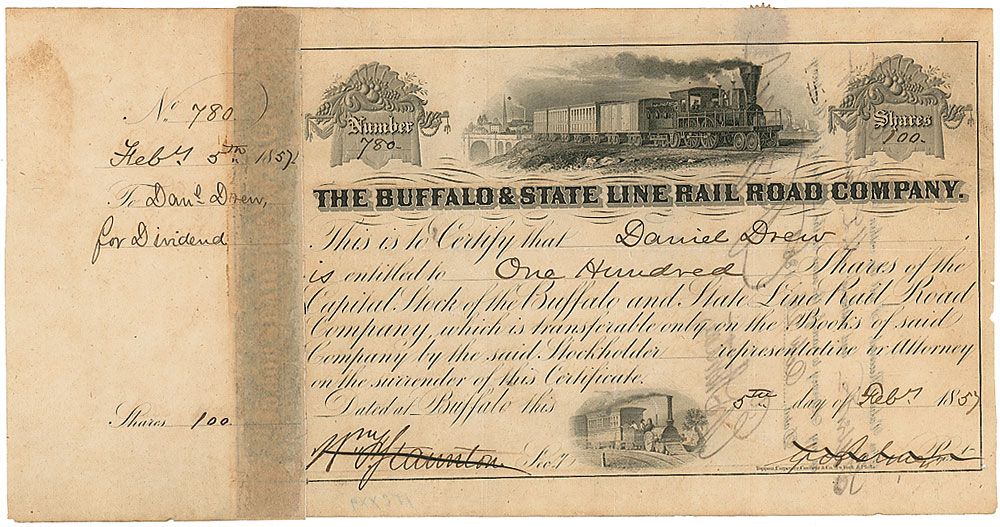 No 780
Feby 5th 1857
To Danl Drew,
for Dividend
Shares 100
Number
780
Shares
100
THE BUFFALO & STATE LINE RAIL ROAD COMPANY.
This is to Certify that Daniel Drew
is entitled to One Hundred Shares of the
Capital Stock of the Buffalo and State Line Rail Road
Company, which is transferable only on the Books of said
Company by the said Stockholder representative or Attorney
on the surrender of this Certificate.
Dated at Buffalo this 5th day of Feby 1857
Wm Staunton Secy
Toppan, Carpenter, Casilear & Co. New York & Phila.